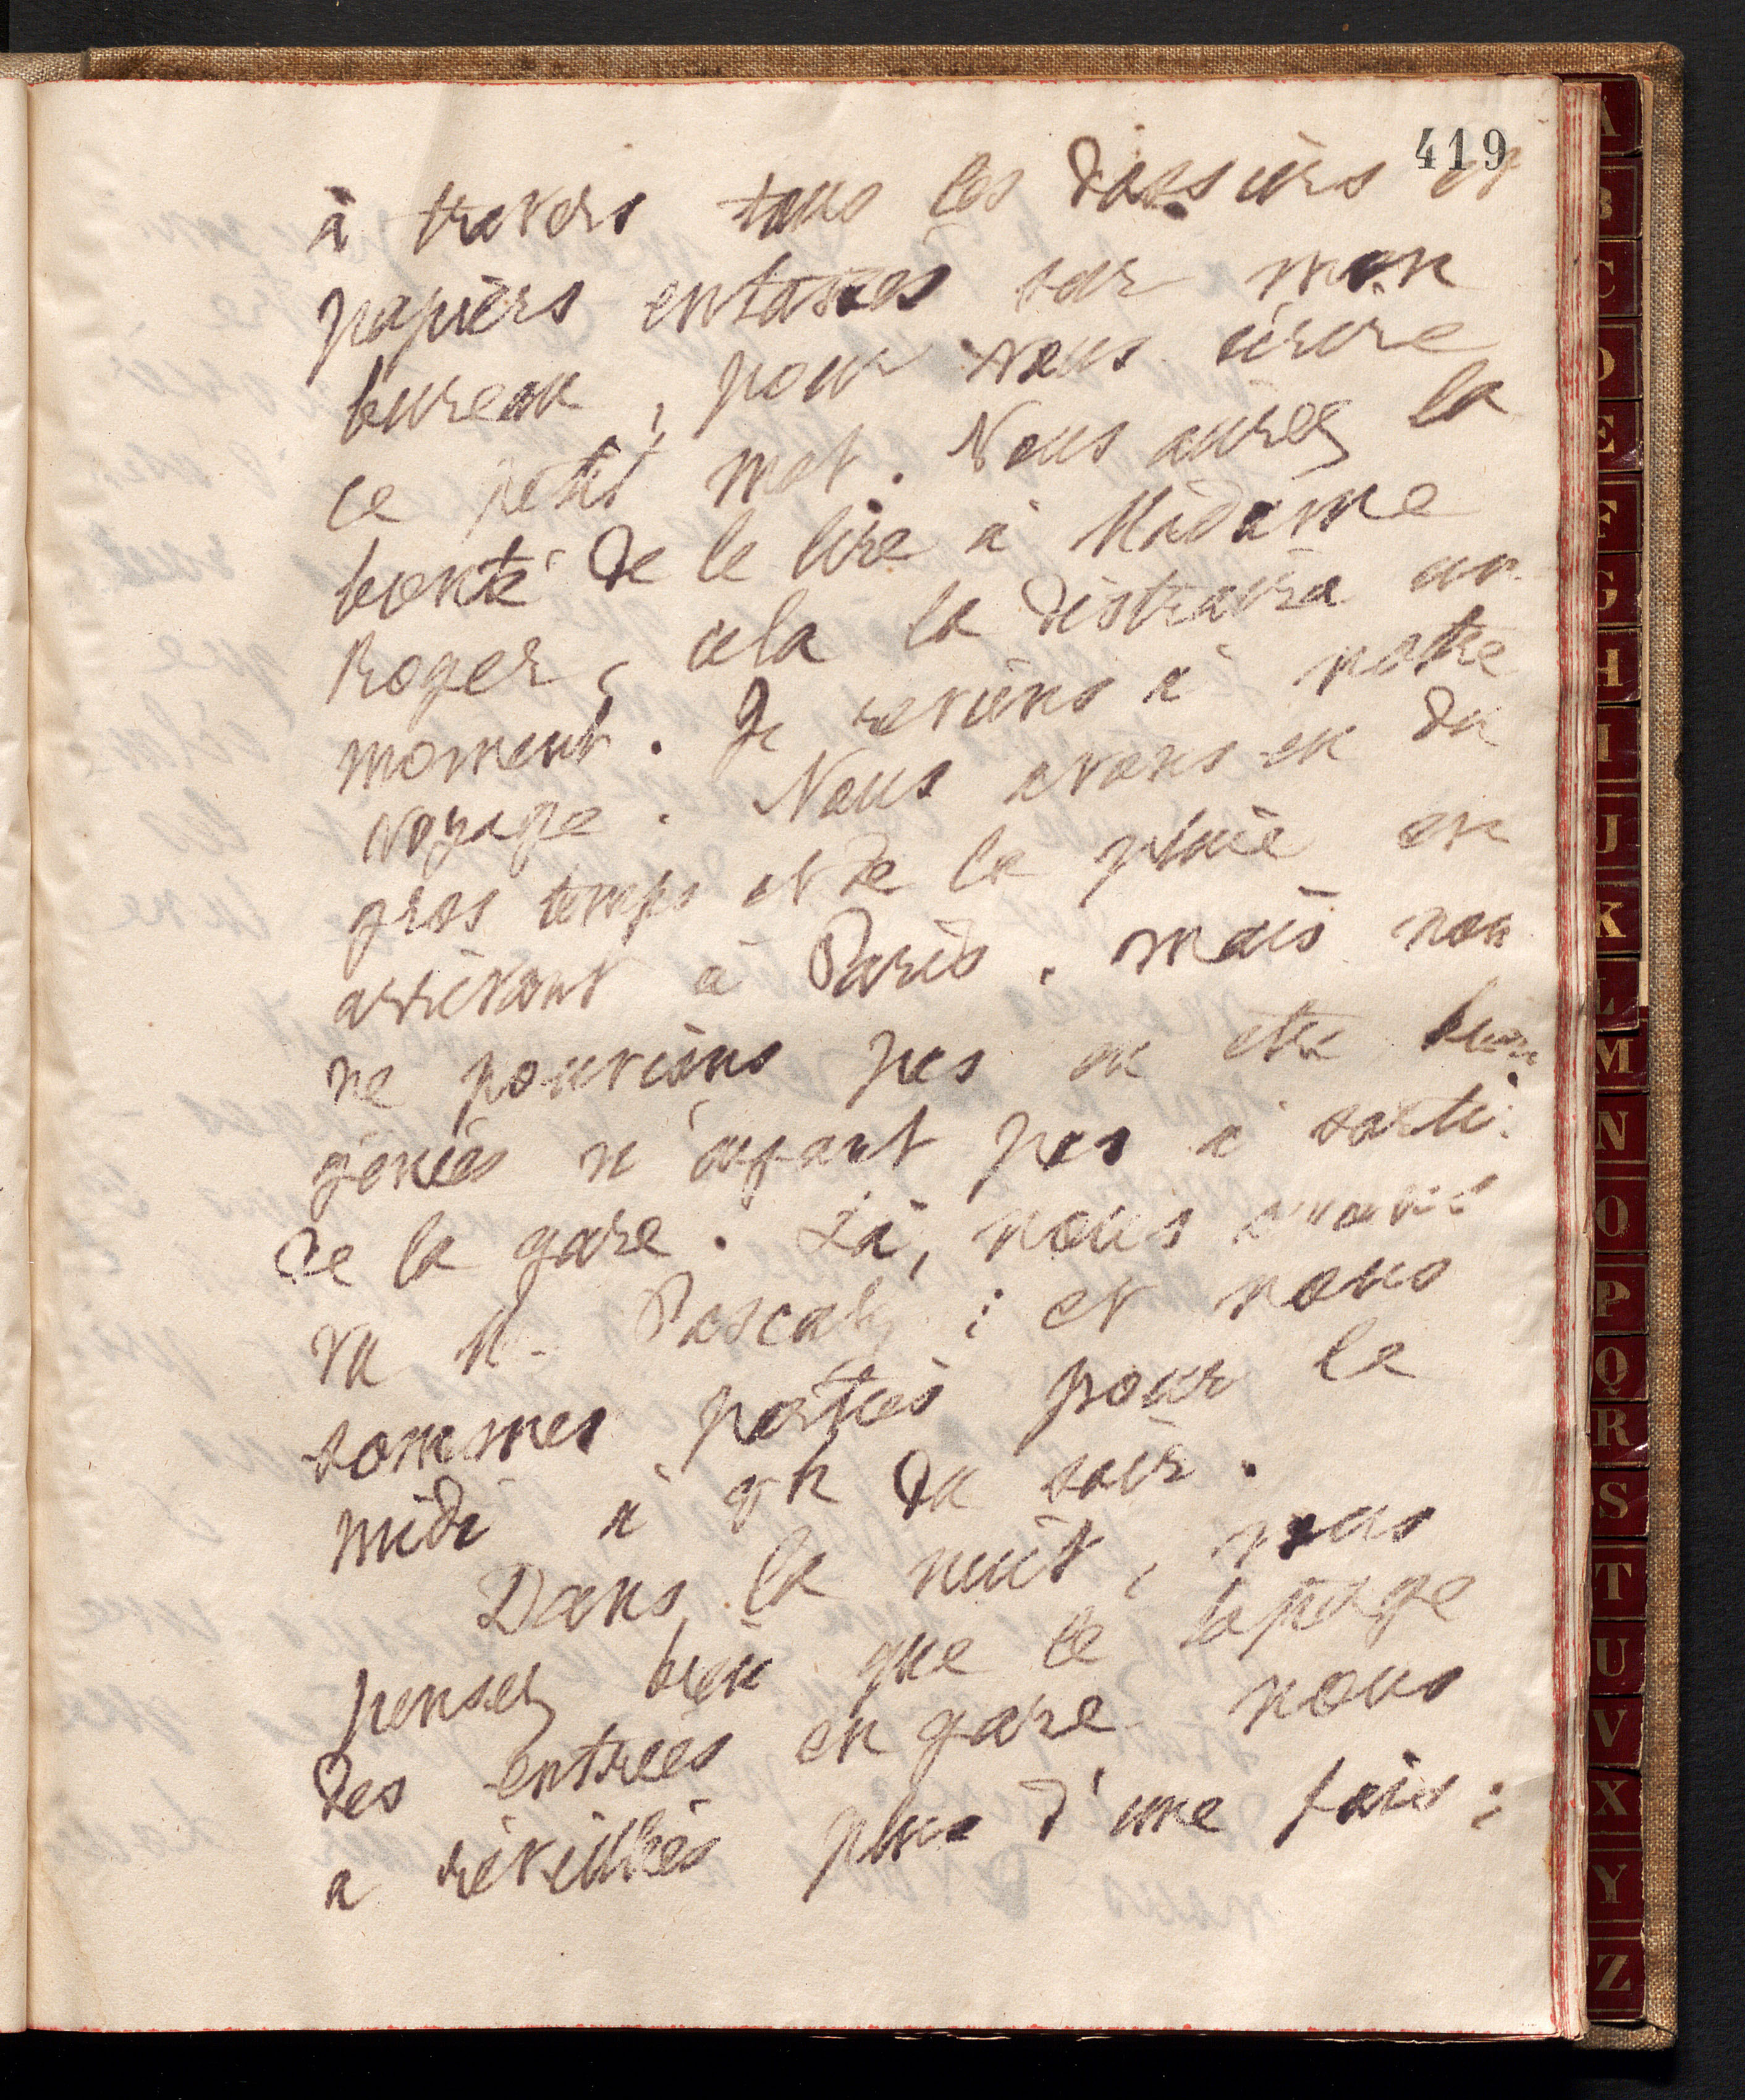 419
à travers tous les dossiers et
papiers entassés sur mon
bureau, pour vous écrire
ce petit mot. Vous aurez la
bonté de le lire à Madame
Roger, cela la distraira un
moment. Je reviens à notre
voyage. Nous avons eu du
gros temps et de la pluie en
arrivant à Paris, mais nous
ne pouvions pas en etre bien
gênés n'ayant pas à sortir
de la gare. Là, nous avons
vu M. Pascal ; et nous
sommes partis pour le
midi à 9 h du soir.
Dans la nuit, vous
pensez bien que le tapage
des entrées en gare nous
a réveillés plus d'une fois ;
A
B
C
D
E
F
G
H
I
J
K
L
M
N
O
P
Q
R
S
T
U
V
X
Y
Z